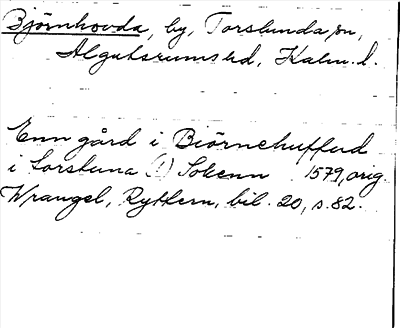 Björnhovda, by, Torslunda sn,
Algutsrums hd, Kalm. l.
Enn gård i Biörnehuffud
i Torsluna (!) Sokenn 1579, orig.
Wrangel, Ryttern, bil. 20, s. 82.